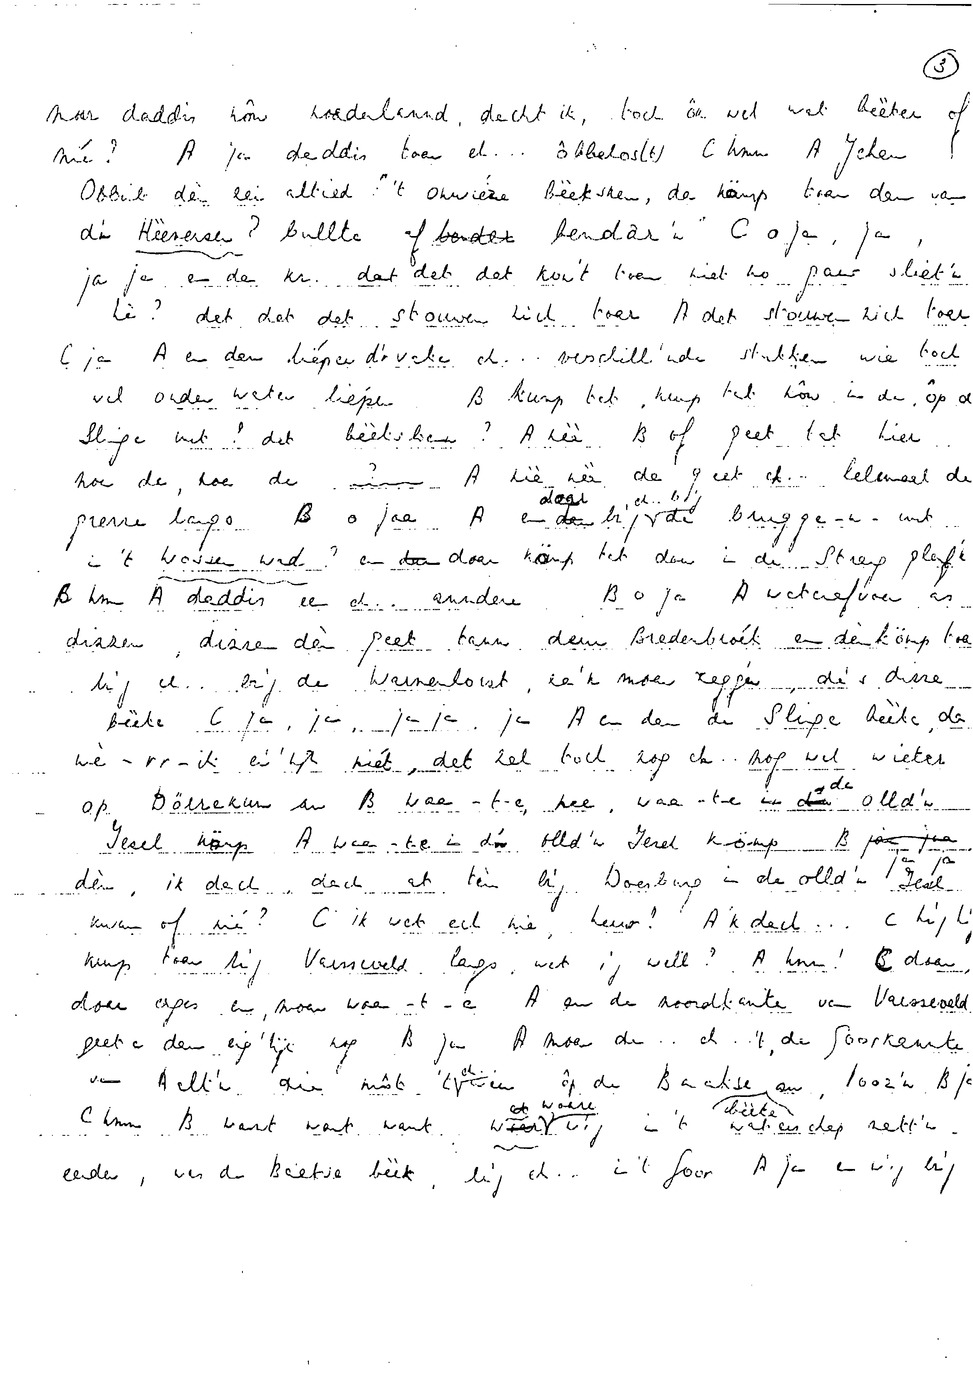 3
daddis hôw noaderlannd, dacht ik, toch ôk wel wat bèëter of
nié? A ja daddis toen eh... ôbbelos(t) C hmm A Jehen
dèn zei altied 't onwiéze bèëksken, da kömp toen den van
dn Hèëversen? bullte of lendâr'n C o ja, ja,
ja ja en de kr. dat det det kon't toen niet zo gauw sliét'n
hè? det dat det stouwen zich toen A det stouwen zich toen
C ja A en den liéper d'r vake eh... verschill'nde stukken wie toch
wel onder water liépen B kump tet, kump tet hôw in de, ôp d
Slinge uut? det bèëtsken? A hèë B of geet tet hier
hoe de, hoe de ? A hèë nèë de geet eh... helemaol de
grense langs B o jaa A en daor bij eh.. bij de brugge-n- uut
in 't Wosse wad? en daor kömp tet dan in de Streng
B hmm A daddis een eh... anndere B o ja A waterafvoer as
dissen, disse dèn geet tann dem Bredenbroék en dèn kömp toe
bij eh.. bij de Warnenhorst, za'k moar zeggen, dé's disse
bèëke C ja, ja, ja ja, ja A en den de Slinge bèëke, da
wè-rr-ik ei'lijk niét, det zal toch nog eh.. nog wel wieter
op Dörrekum an B waa-t-e, nee, waa-t-e in de olld'n
Iesel kömp A waa-t-e in dn olld'n Iesel kömp B ja ja
dèn, ik dach, dach at tèn bij Doesburg in de olld'n Iesel
kwam of nié? C ik wet ech nie, heur! A 'k dach... C hij
kump toen bij Varsseveld langs, wet ij well? A hmm! C daor,
daor erges en, moar waa-t-e A an de noordkante van Varsseveld
geet e dan eig'lijk nog B ja A moar de.. eh.. 't, de Goorkante
van Aalt'n die môt op de Baakse an looz'n B ja
C hmm B want want want at waare wij in 't waterschap zatt'n
eerder, van de Baakse bèëk, bij eh.. in 't Goor A ja en wij bij